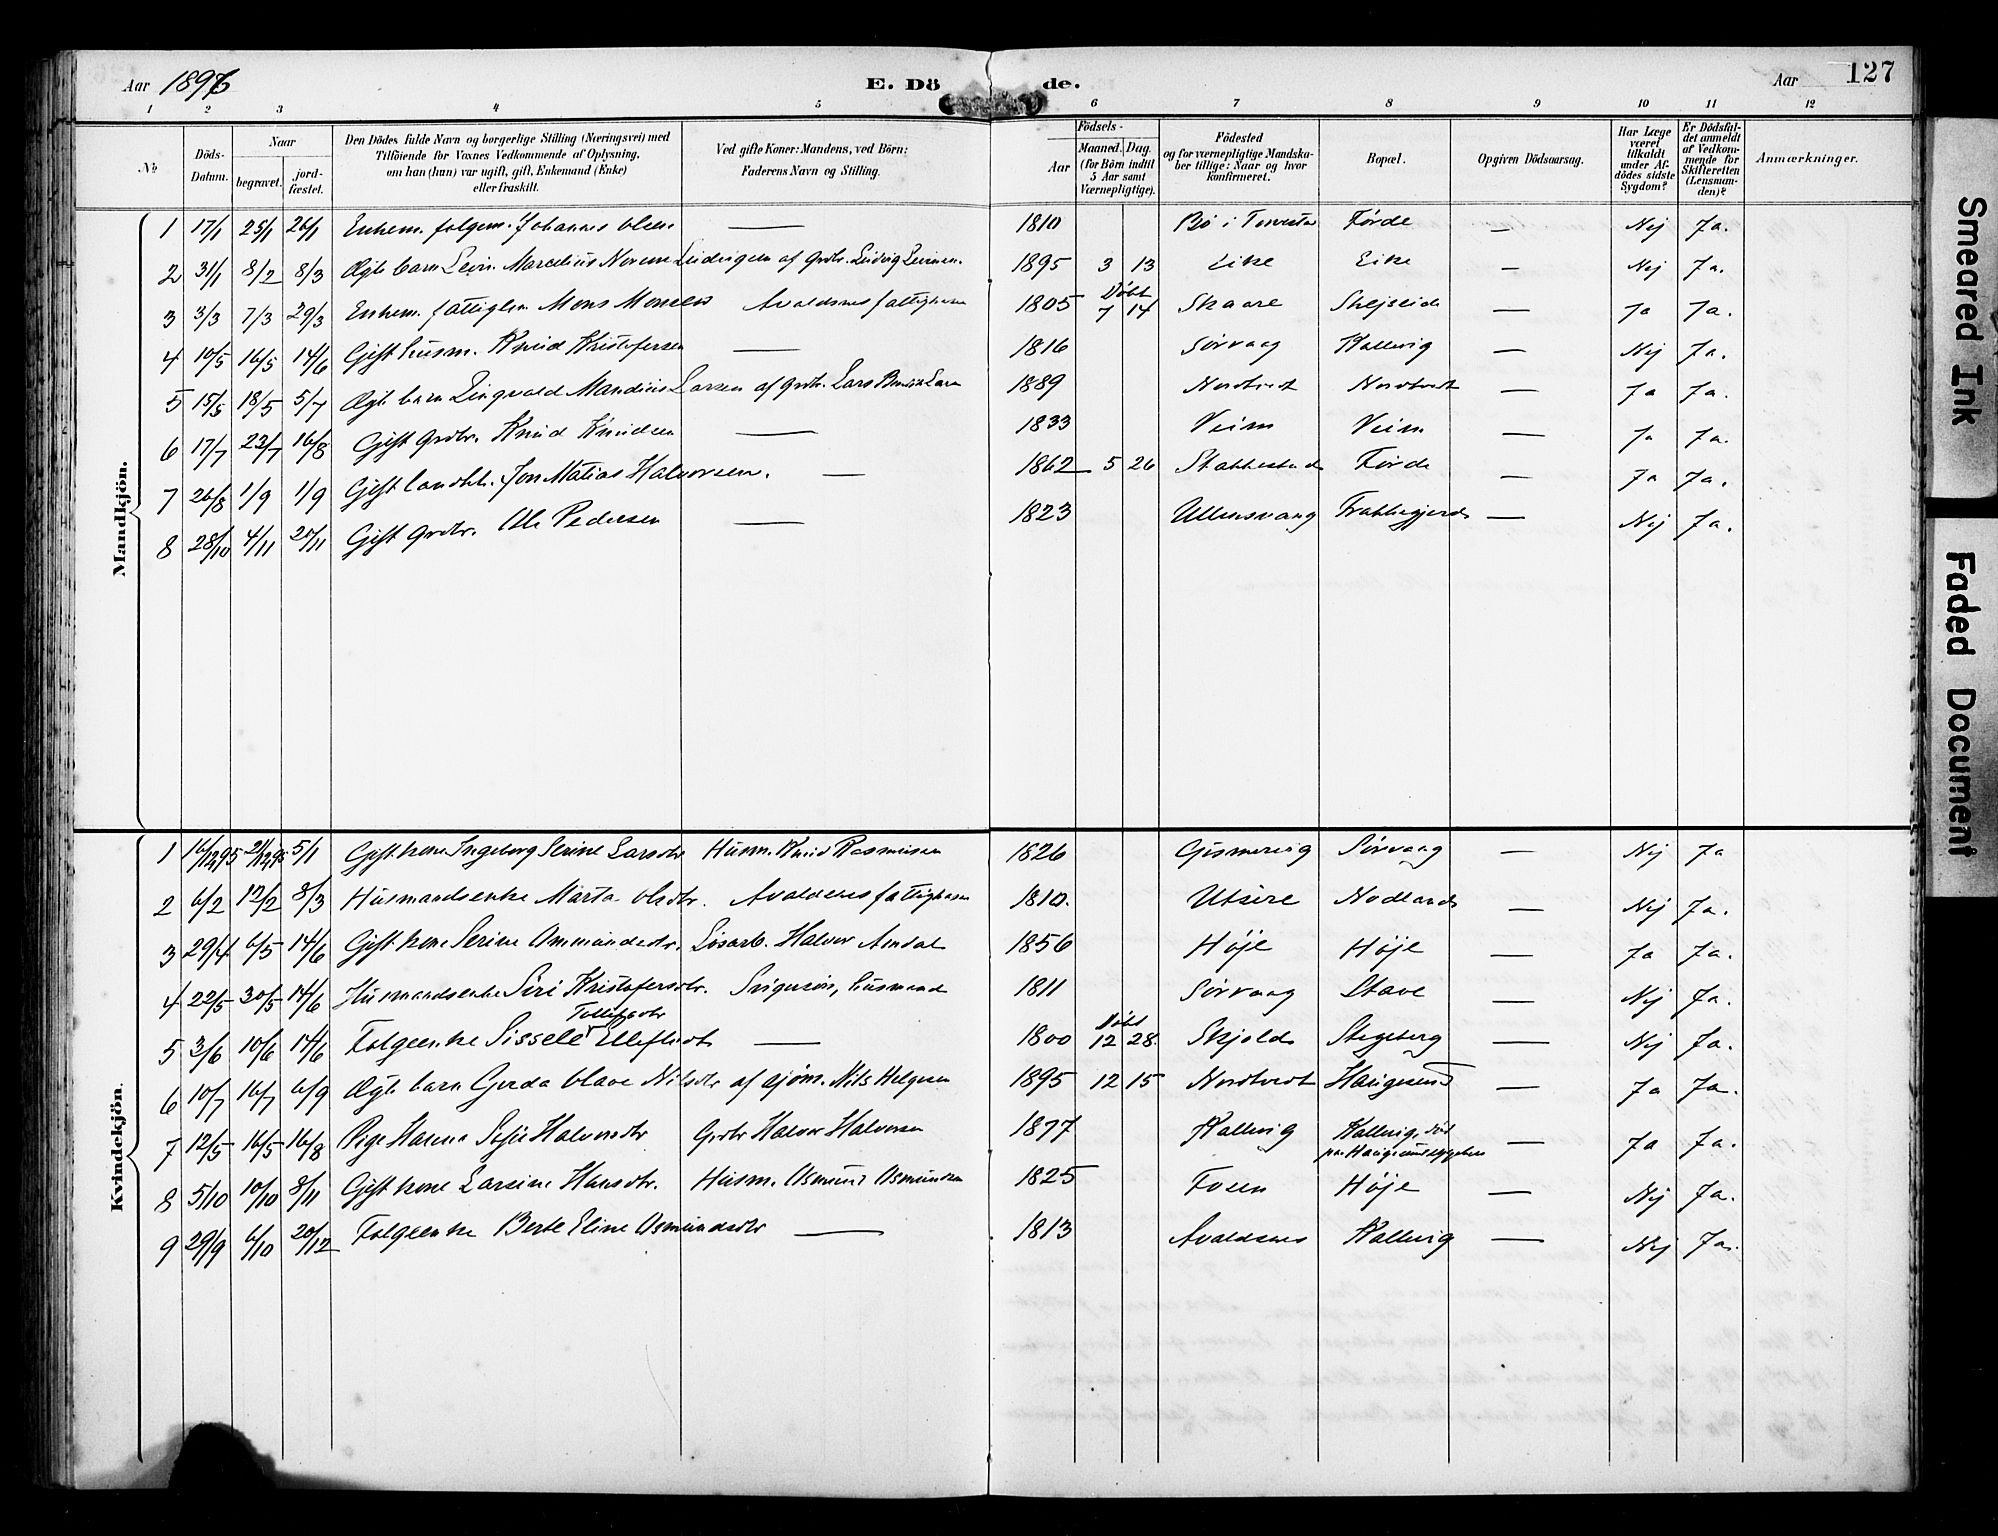 Aar 1896 E. Dö de. Aar 127
1 2 3 4 5 6 7 8 9 10 11 12
No. Döds-Datum. Naar begravet. jord-fæstet. Den Dödes fulde Navn og borgerlige Stilling (Næringsvei) med Tilföiende for Voxnes Vedkommende af Oplysning, om han (hun) var ugift, gift, Enkemand (Enke) eller fraskilt. Ved gifte Koner: Mandens, ved Börn: Faderens Navn og Stilling. Födsels- Aar Maaned. Dag. (for Börn indtil 5 Aar samt Værnepligtige). Födested og for værnepligtige Mandskaber tillige: Naar og hvor konfirmeret. Bopæl. Opgiven Dödsaarsag. Har Læge været tilkaldt under Afdödes sidste Sygdom? Er Dödsfaldet anmeldt af Vedkommende for Skifteretten (Lensmanden)? Anmærkninger.
Mandkjön.
1 17/1 25/1 26/1 Enkem. folgem. Johannes Olsen — 1810 Bö i Förde — Nej Ja.
2 31/1 8/2 8/3 Ægte barn Marselius Ludvigsen af grdbr. Ludvig 1895 3 13 Eike Eike — Nej Ja.
3 3/3 7/3 29/3 Enkem. fattiglem Mons Monsen Avaldsnes fattigkasse 1805 Döbt 7 14 Skaare — Ja Ja.
4 10/5 16/5 14/6 Gift husm. Knud Kristofersen — 1816 Sörvaag Kallevig — Nej Ja.
5 15/5 18/5 5/7 Ægte barn Ringvald Mandius Larsen af grdbr. Lars 1889 Nordtveit Nordtveit — Ja Ja.
6 17/7 23/7 16/8 Gift grdbr. Knud Knudsen — 1833 Veim Veim — Ja Ja.
7 26/8 1/9 1/9 Gift landhl. Jon Matias Halvorsen. — 1862 5 26 Stakkestad Förde — Ja Ja.
8 28/10 4/11 20/11 Gift grdbr. Ole Pedersen — 1823 Ullensvang — Nej Ja.
Kvindekjön.
1 16/12 95 21/12 95 5/1 Gift kone Ingeborg Serine Larsdtr Husm. Knud Rasmussen 1826 Gismervig Sörvaag — Nej Ja
2 6/2 12/2 8/3 Husmandsenke Marta Olsdtr. Avaldsnes fattigkasse 1810. Utsire Nodland — Nej Ja.
3 29/4 6/5 14/6 Gift kone Serine Ammundsdtr. Lösarb. Halvor 1856 Höje Höje — Ja Ja.
4 22/5 30/5 14/6 Husmandsenke Siri Kristofersdtr. husmand 1811 Sörvaag Stave — Nej Ja.
5 3/6 10/6 14/6 Folgeenke Sissele Tollefsdtr — 1800 Döbt 12 28. Skjold Stegeberg — Nej Ja.
6 10/7 16/7 6/9 Ægte barn Gerda Olave Nilsdtr af sjöm. Nils Helgesen 1895 12 15 Nordtveit Haugesund — Ja Ja.
7 12/5 16/5 16/8 Pige Hanna Sofie Halvorsdtr Grdbr Halvor Halvorsen 1877 Kallevig Kallevig, död paa Haugesunds sygehus — Ja Ja.
8 5/10 10/10 8/11 Gift kone Larsine Hansdtr. Husm. Osmund Osmundsen 1825 Fosen Höje — Nej Ja.
9 29/9 6/10 20/12 Folgeenke Berte Eline Osmundsdtr — 1813 Avaldsnes Kallevig — Nej Ja.
Smeared Ink
Faded Document